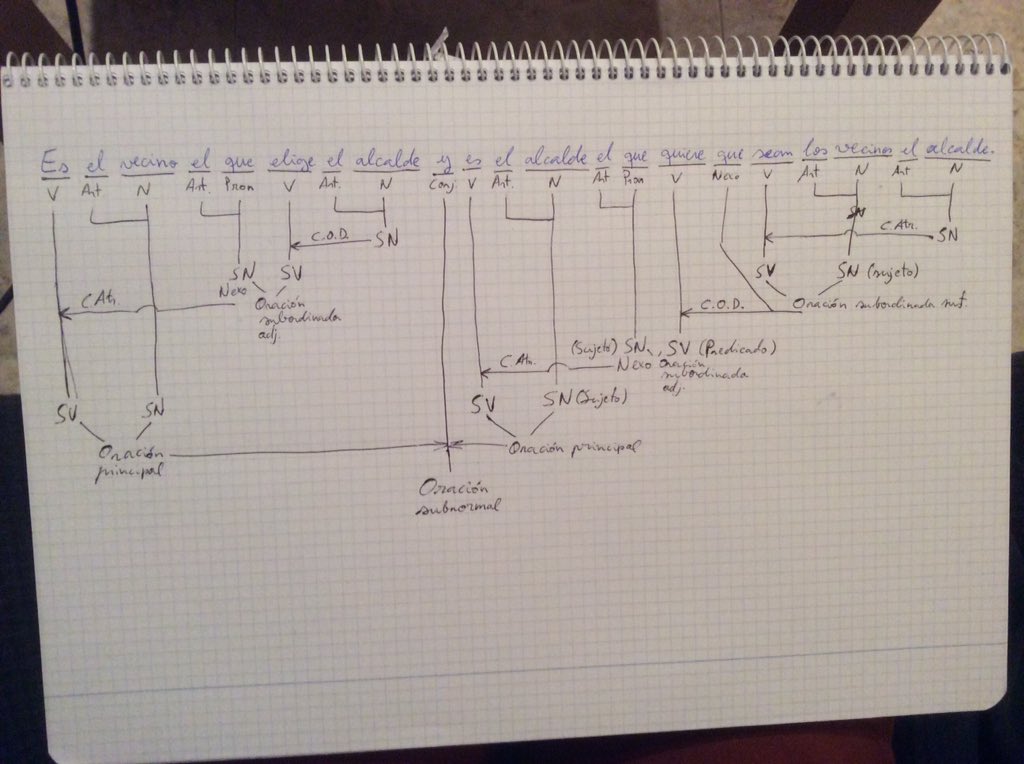 Es el vecino el que elige el alcalde y es el alcalde el que quiere que sean los vecinos el alcalde.
V Art N Art. Pron V Art. N Conj. V Art. N Art Pron V Nexo V Art N Art N
SN
C.O.D. SN C.Atr. SN
SN SV SV SN (sujeto)
Nexo Oración subordinada adj.
C.Atr.
C.O.D. Oración subordinada sust.
(Sujeto) SN, SV (Predicado)
C.Atr. Nexo Oración subordinada adj.
SV SN SV SN (Sujeto)
Oración principal Oración principal
Oración
subnormal